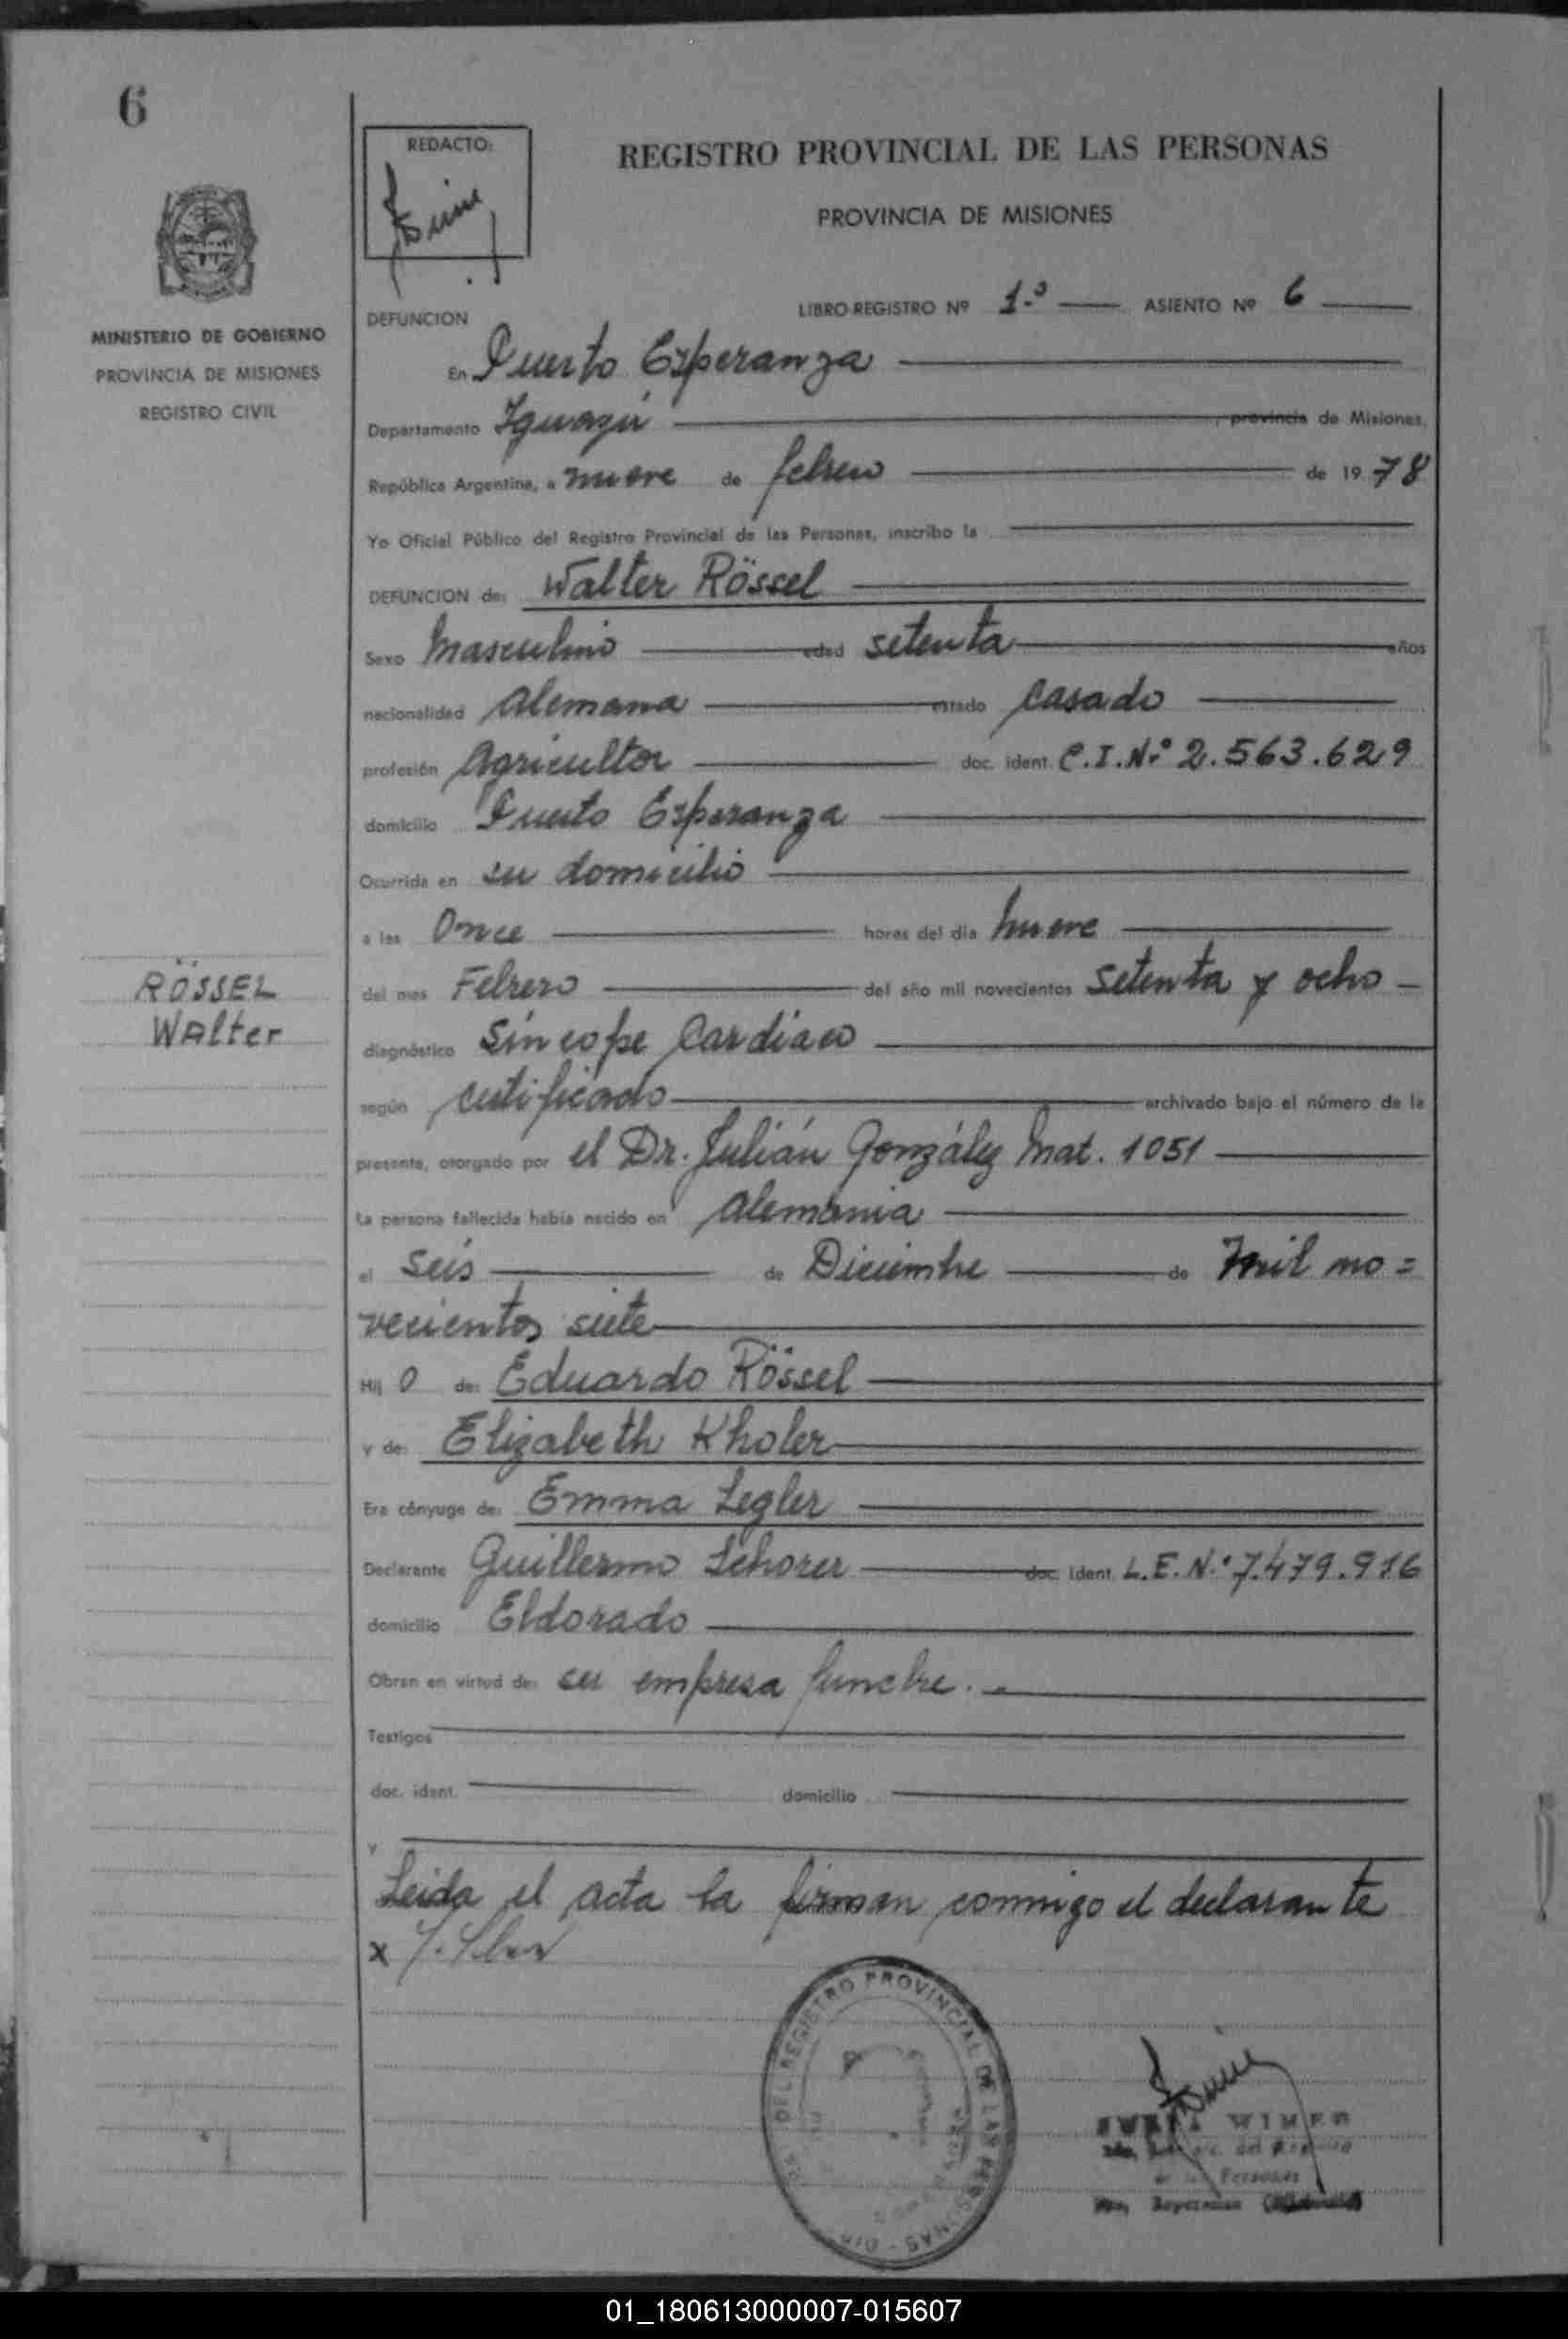 6
REDACTO:
REGISTRO PROVINCIAL DE LAS PERSONAS
PROVINCIA DE MISIONES
MINISTERIO DE GOBIERNO
PROVINCIA DE MISIONES
REGISTRO CIVIL
DEFUNCION
LIBRO-REGISTRO Nº 1.º ASIENTO Nº 6
En Puerto Esperanza
Departamento Iguazú, provincia de Misiones,
República Argentina, a nueve de febrero de 19 78
Yo Oficial Público del Registro Provincial de las Personas, inscribo la
DEFUNCION de: Walter Rössel
Sexo Masculino edad setenta años
nacionalidad Alemana estado Casado
profesión Agricultor doc. ident. C.I.N.º 2.563.629
domicilio Puerto Esperanza
Ocurrida en su domicilio
a las Once horas del dia nueve
RÖSSEL
Walter
del mes Febrero del año mil novecientos Setenta y ocho
diagnóstico Síncope Cardiaco
según certificado archivado bajo el número de la
presente, otorgado por el Dr. Julián González Mat. 1051
La persona fallecida había nacido en Alemania
el Seis de Diciembre de Mil no=
vecientos siete
Hij o de: Eduardo Rössel
y de: Elizabeth Kholer
Era cónyuge de: Emma Legler
Declarante Guillermo Schorer doc. ident. L.E.N.º 7.479.916
domicilio Eldorado
Obran en virtud de: ser empresa funebre.
Testigos
doc. ident. domicilio
y
Leida el acta la firman conmigo el declarante
x
DEL REGISTRO PROVINCIAL DE LAS PERSONAS - DIR
WIMER
del
de las Personas
01_180613000007-015607